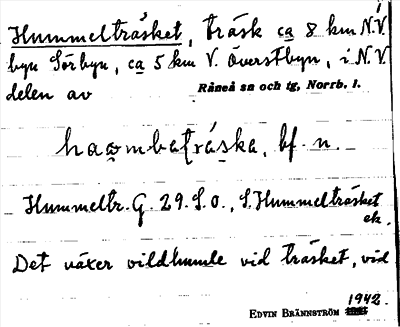 Hummelträsket, träsk ca 8 km N.V.
byn Sörbyn, ca 5 km V. Överstbyn, i N.V.
delen av Råneå sn och tg, Norrb. l.
haombatráska, bf. n.
Hummeltr. G. 29. S.O., S. Hummelträsket
ek.
Det växer vildhumle vid träsket, vid
1942.
EDVIN BRÄNNSTRÖM